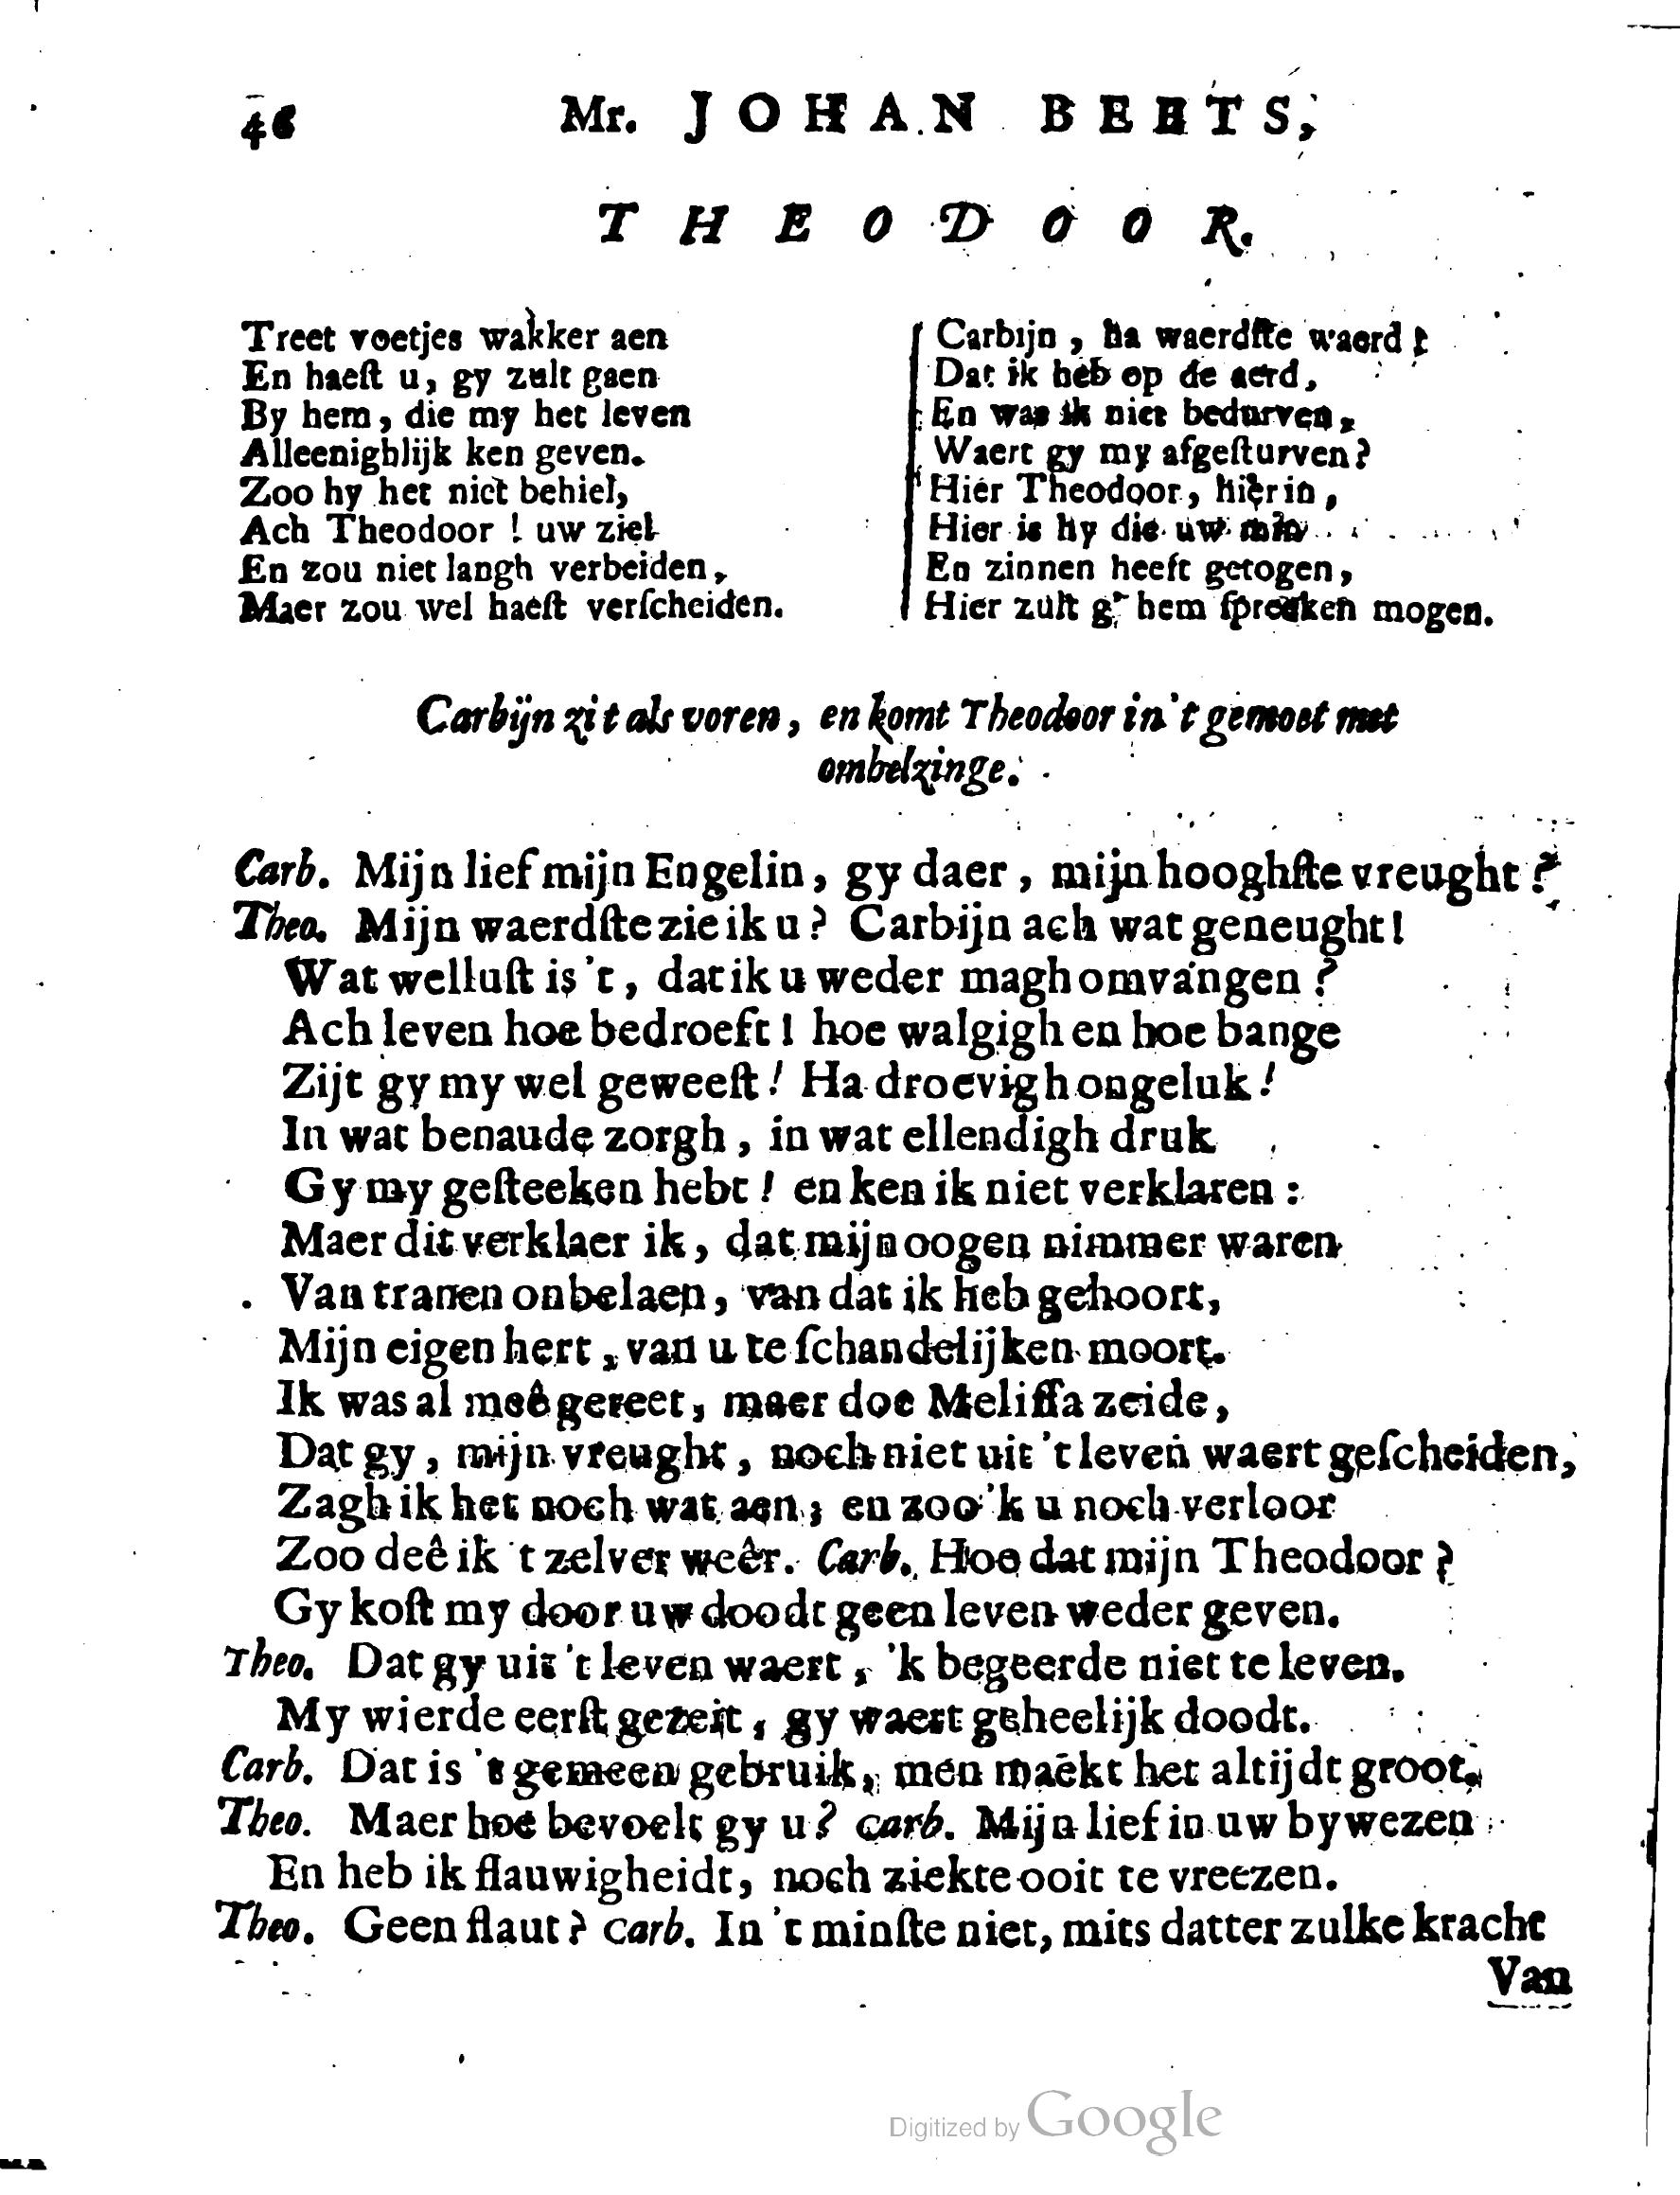 46 Mr. JOHAN BEETS,
THEODOOR.
Treet voetjes wakker aen
En haeſt u, gy zult gaen
By hem, die my het leven
Alleenighlijk ken geven.
Zoo hy het niet behiel,
Ach Theodoor ! uw ziel
En zou niet langh verbeiden,
Maer zou wel haeſt verſcheiden.
Carbijn, ha waerdſte waerd!
Dat ik heb op de aerd,
En was ik niet bedurven,
Waert gy my afgeſturven?
Hier Theodoor, hier in,
Hier is hy die uw min
En zinnen heeft getogen,
Hier zult g' hem ſpreeken mogen.
Carbijn zit als voren, en komt Theodoor in 't gemoet met
ombelzinge.
Carb. Mijn lief mijn Engelin, gy daer, mijn hooghſte vreught?
Theo. Mijn waerdſte zie ik u? Carbijn ach wat geneught!
Wat welluſt is 't, dat ik u weder magh omvangen?
Ach leven hoe bedroeft! hoe walgigh en hoe bange
Zijt gy my wel geweeſt! Ha droevigh ongeluk!
In wat benaude zorgh, in wat ellendigh druk
Gy my geſteeken hebt! en ken ik niet verklaren:
Maer dit verklaer ik, dat mijn oogen nimmer waren
Van tranen onbelaen, van dat ik heb gehoort,
Mijn eigen hert, van u te ſchandelijken moort.
Ik was al meê gereet, maer doe Meliſſa zeide,
Dat gy, mijn vreught, noch niet uit 't leven waert geſcheiden,
Zagh ik het noch wat aen; en zoo 'k u noch verloor
Zoo deê ik 't zelver weêr. Carb. Hoe dat mijn Theodoor?
Gy koſt my door uw doodt geen leven weder geven.
Theo. Dat gy uit 't leven waert, 'k begeerde niet te leven.
My wierde eerſt gezeit, gy waert geheelijk doodt.
Carb. Dat is 't gemeen gebruik, men maekt het altijdt groot.
Theo. Maer hoe bevoelt gy u? Carb. Mijn lief in uw bywezen
En heb ik flauwigheidt, noch ziekte ooit te vreezen.
Theo. Geen flaut? Carb. In 't minſte niet, mits datter zulke kracht
Van
Digitized by Google